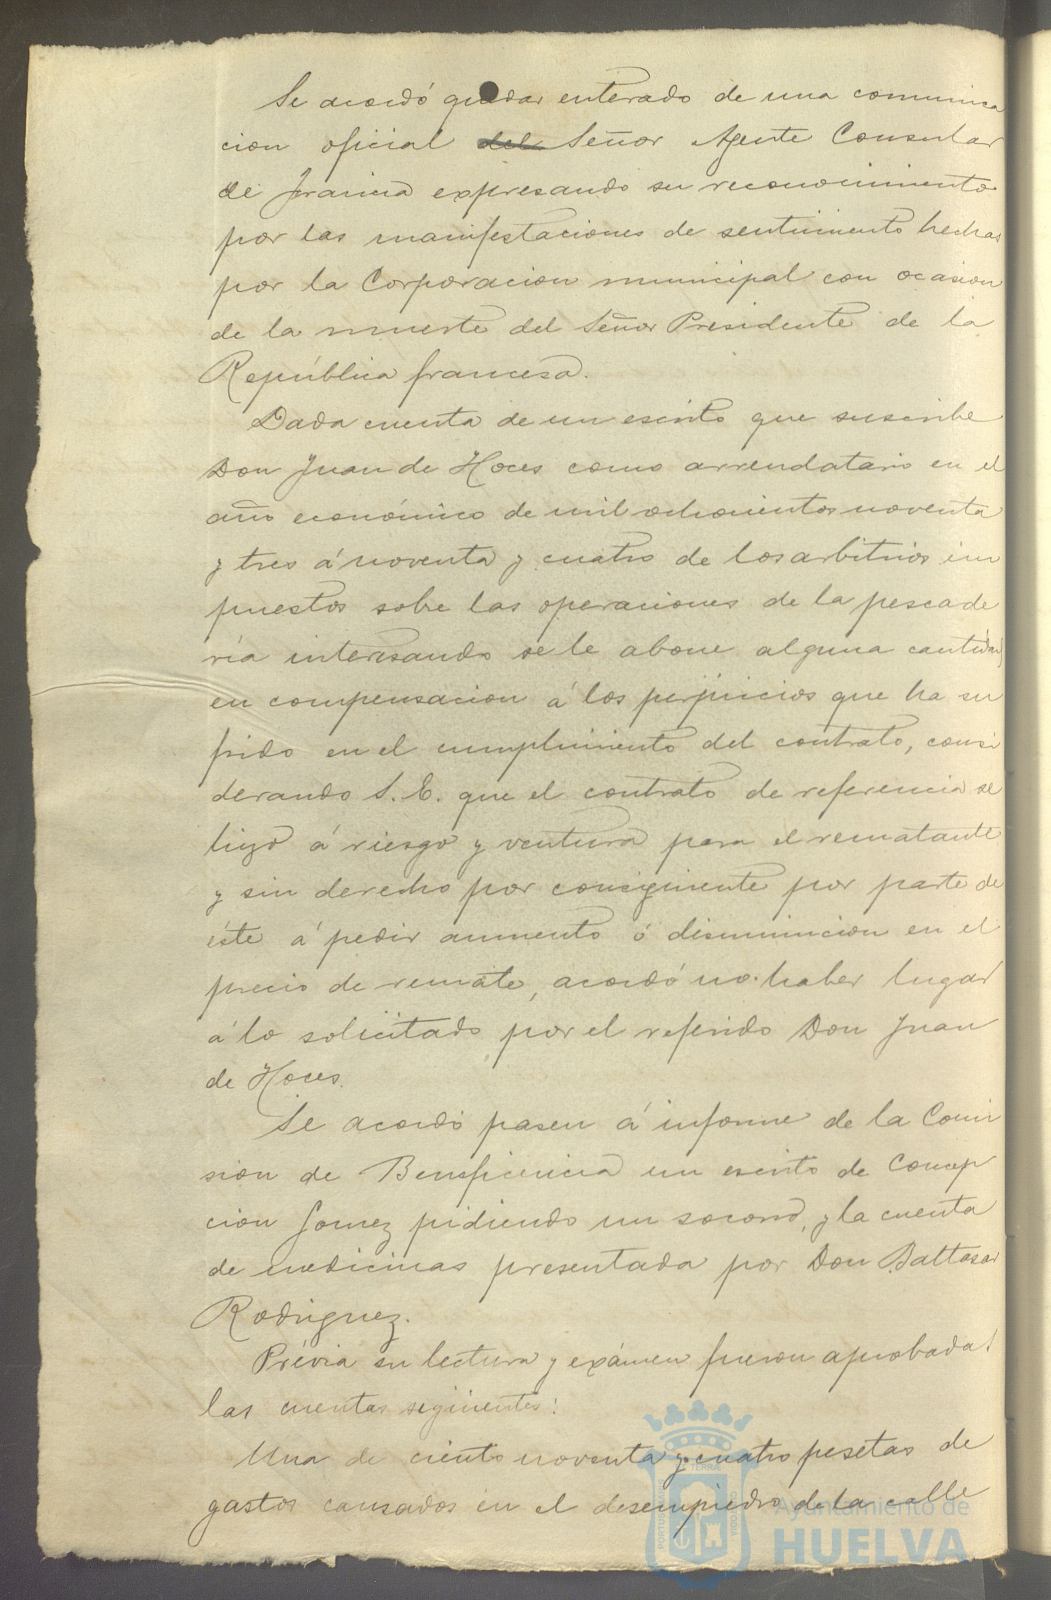 Se acordó quedar enterado de una comunica
cion oficial del Señor Agente Consular
de Francia expresando su reconocimiento
por las manifestaciones de sentimiento hechas
por la Corporacion municipal con ocasion
de la muerte del Señor Presidente de la
República francesa.
Dada cuenta de un escrito que suscribe
Don Juan de Hoces como arrendatario en el
año económico de mil ochocientos noventa
y tres á noventa y cuatro de los arbitrios im
puestos sobre las operaciones de la pescade
ria interesando se le abone alguna cantidad
en compensacion á los perjuicios que ha su
frido en el cumplimiento del contrato, consi
derando S. E. que el contrato de referencia se
hizo á riesgo y ventura para el rematante
y sin derecho por consiguiente por parte de
éste á pedir aumento ó disminucion en el
precio de remate, acordó no haber lugar
á lo solicitado por el referido Don Juan
de Hoces.
Se acordó pasen á informe de la Comi
sion de Beneficencia un escrito de Concep
cion Gomez pidiendo un socorro, y la cuenta
de medicinas presentada por Don Baltasar
Rodriguez.
Prévia su lectura y exámen fueron aprobadas
las cuentas siguientes:
Una de ciento noventa y cuatro pesetas de
gastos causados en el desempiedro de la calle
Ayuntamiento de
HUELVA